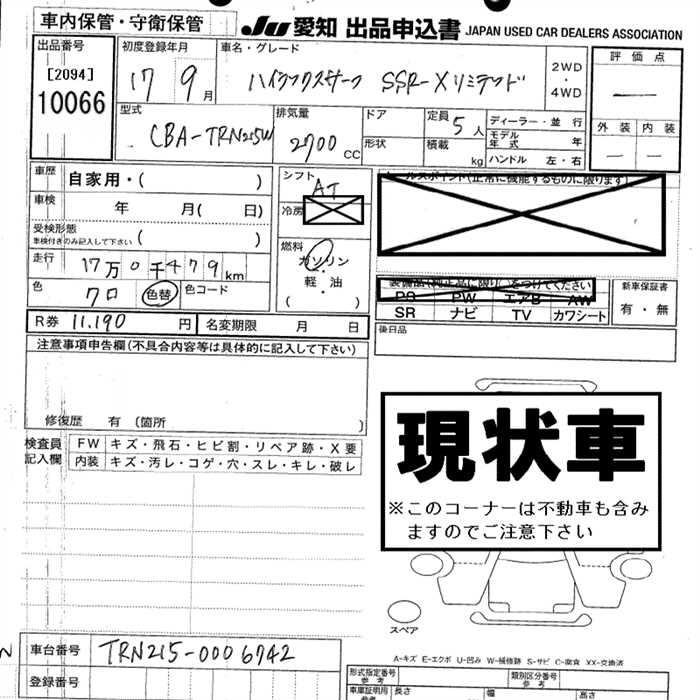 車内保管・守衛保管
JU 愛知 出品申込書 JAPAN USED CAR DEALERS ASSOCIATION
出品番号
[2094]
10066
初度登録年月
17 9月
車名・グレード
ハイラックスサーフ SSR-Xリミテッド
2WD
・
4WD
評価点
—
外装 内装
— —
型式
CBA-TRN215W
排気量
2700 CC
ドア
形状
定員 5人
積載 kg
ディーラー・並行
モデル年式 年
ハンドル 左・右
車歴 自家用・( )
車検 年 月( 日)
受検形態
車検付きのみ記入して下さい ( )
走行 17万0千479km
色 クロ 色替 色コード
シフト AT
冷房
燃料
ガソリン
・
軽油
( )
セールスポイント(正常に機能するものに限ります)
装備品(純正品に限り○をつけてください)
PS PW エアB AW
SR ナビ TV カワシート
新車保証書
有・無
後日品
R券 11.190円 名変期限 月 日
注意事項申告欄(不具合内容等は具体的に記入して下さい)
修復歴 有 (箇所 )
検査員記入欄
FW キズ・飛石・ヒビ割・リペア跡・X要
内装 キズ・汚レ・コゲ・穴・スレ・キレ・破レ
現状車
※このコーナーは不動車も含み
ますのでご注意下さい
スペア
A-キズ E-エクボ U-凹み W-補修跡 S-サビ C-腐食 XX-交換済
車台番号 TRN215-0006742
登録番号
形式指定番号
参考
類別区分番号
参考
車庫証明用
参考
長さ 幅 高さ